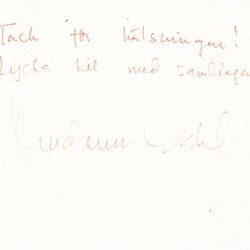 Tack för hälsningen!
Lycka till med samlingen
Dahl